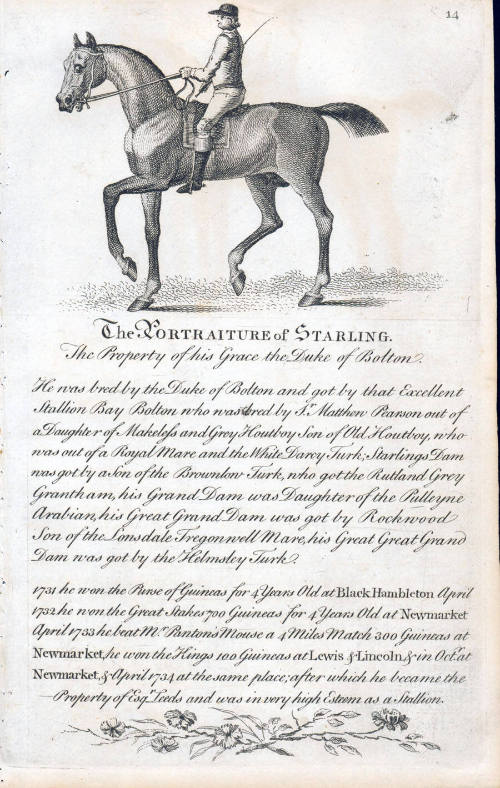 14
The PORTRAITURE of STARLING.
The Property of his Grace the Duke of Bolton.
He was bred by the Duke of Bolton and got by that Excellent
Stallion Bay Bolton who was bred by Sr. Matthew Pearson out of
a Daughter of Makeless and Grey Houtboy Son of Old Houtboy, who
was out of a Royal Mare and the White Darcy Turk; Starlings Dam
was got by a Son of the Brownlow Turk, who got the Rutland Grey
Grantham, his Grand Dam was Daughter of the Pulleyne
Arabian, his Great Grand Dam was got by Rockwood
Son of the Lonsdale Tregonwell Mare, his Great Great Grand
Dam was got by the Helmsley Turk.
1731 he won the Purse of Guineas for 4 Years Old at Black Hambleton April
1732 he won the Great Stakes 700 Guineas for 4 Years Old at Newmarket
April 1733 he beat Mr. Pantons Mouse a 4 Miles Match 300 Guineas at
Newmarket, he won the Kings 100 Guineas at Lewis & Lincoln, & in Oct. at
Newmarket, & April 1734 at the same place; after which he became the
Property of Esqr. Leeds and was in very high Esteem as a Stallion.